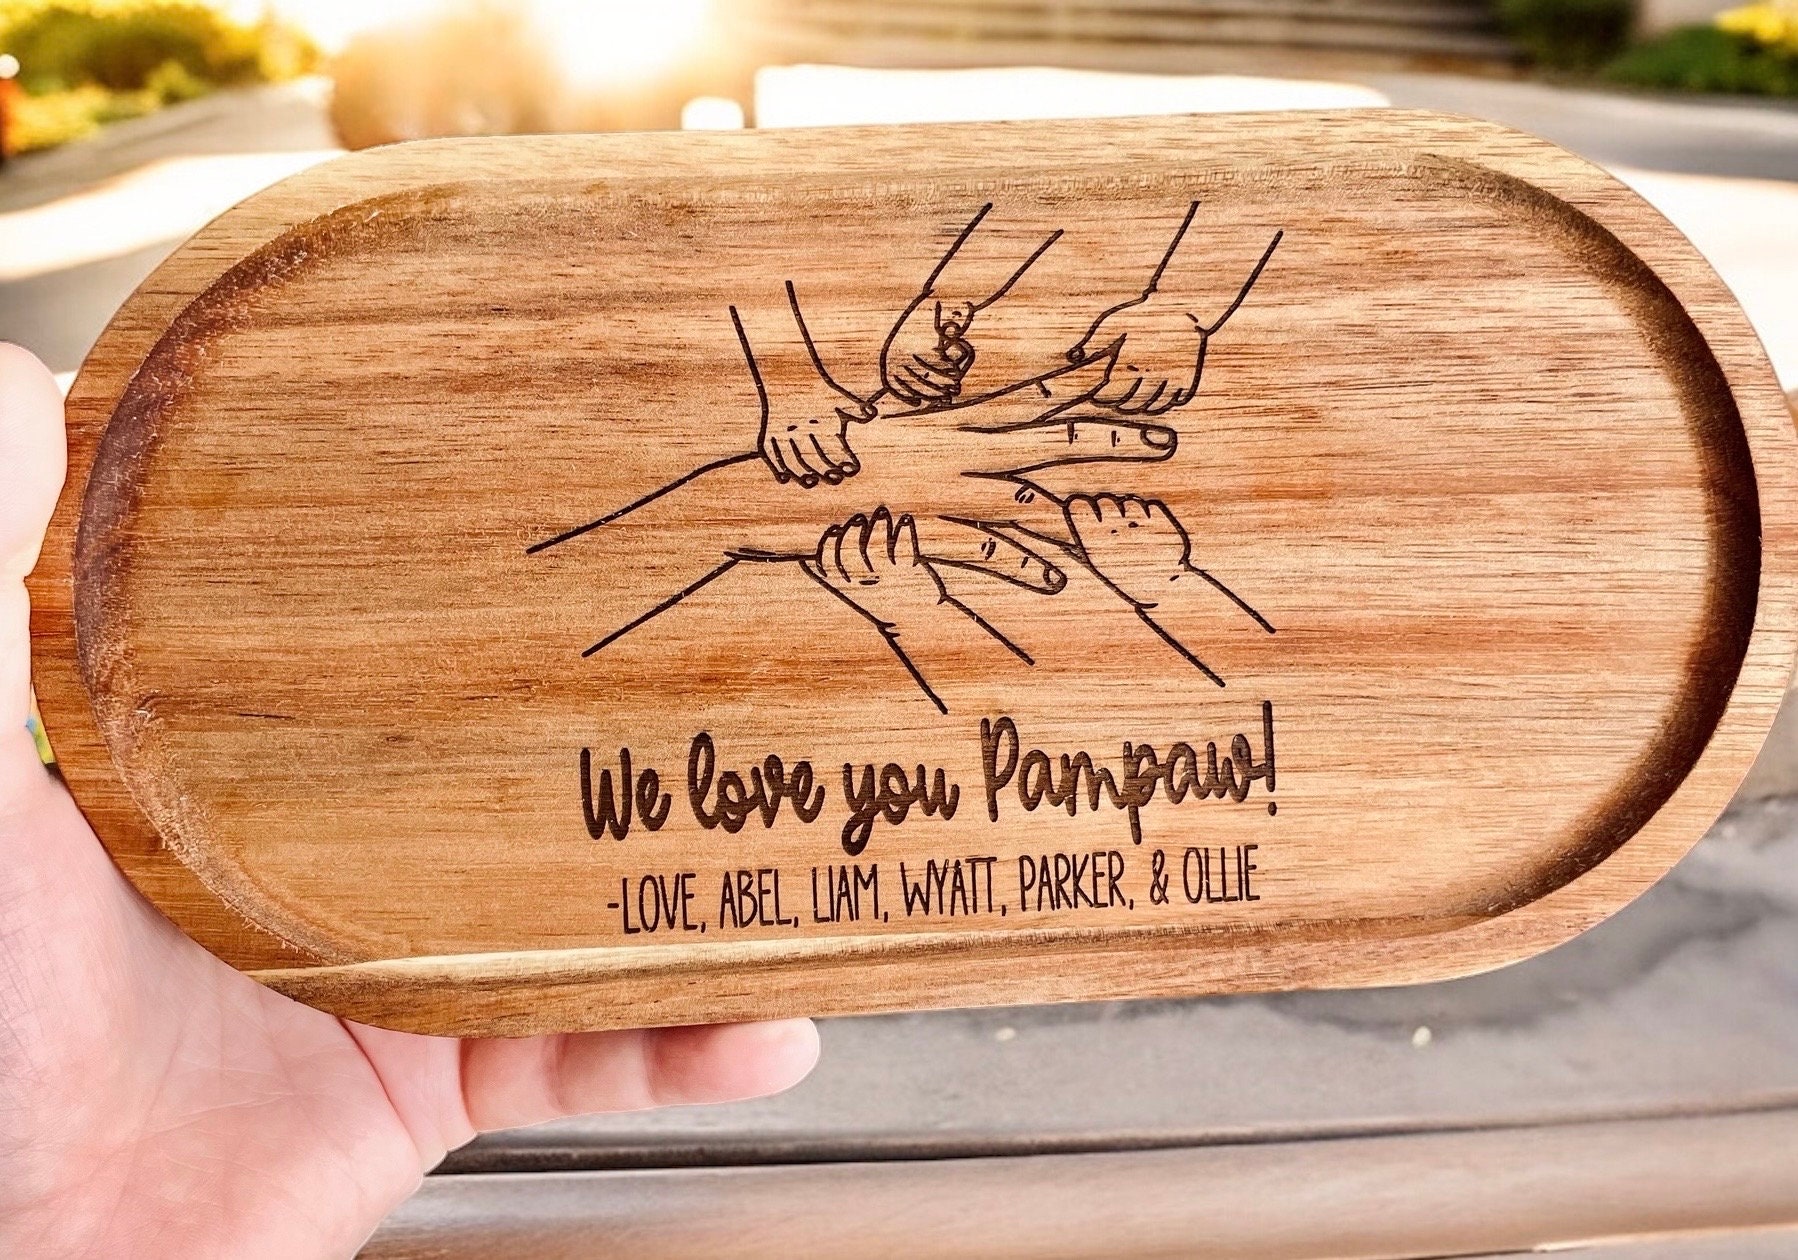 We love you Pampaw!
-LOVE, ABEL, LIAM, WYATT, PARKER, & OLLIE